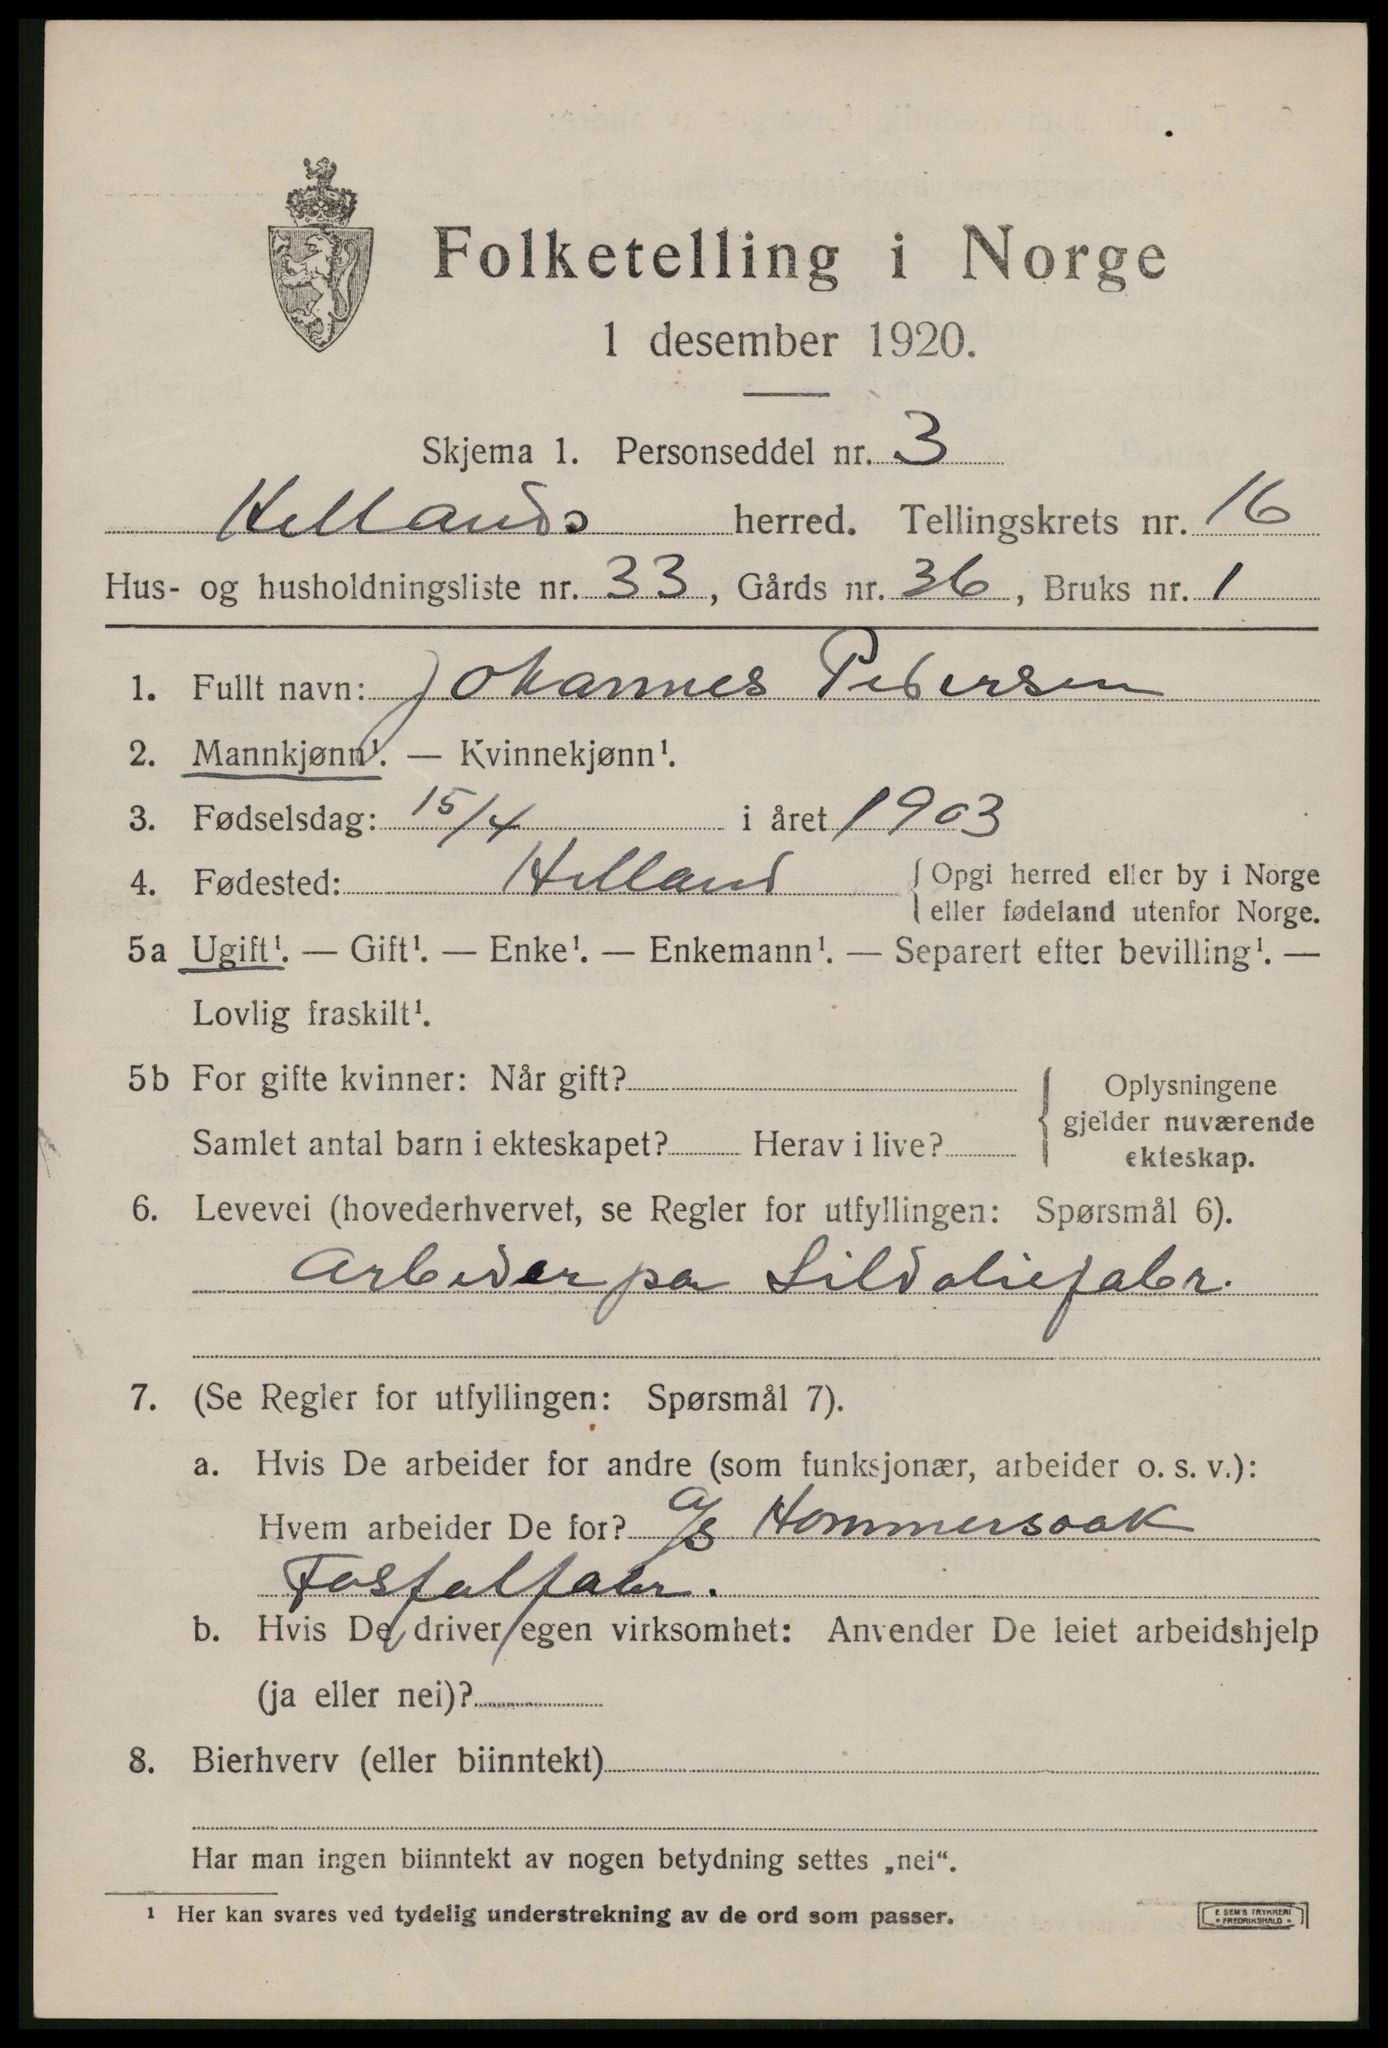 Folketelling i Norge
1 desember 1920.
Skjema 1. Personseddel nr. 3
Hetlands herred. Tellingskrets nr. 16
Hus- og husholdningsliste nr. 33, Gårds nr. 36, Bruks nr. 1
1. Fullt navn: Johannes Pedersen
2. Mannkjønn¹. — Kvinnekjønn¹.
3. Fødselsdag: 15/4 i året 1903
4. Fødested: Hetland { Opgi herred eller by i Norge
eller fødeland utenfor Norge.
5a Ugift¹. — Gift¹. — Enke¹. — Enkemann¹. — Separert efter bevilling¹. —
Lovlig fraskilt¹.
5b For gifte kvinner: Når gift? { Oplysningene
gjelder nuværende
ekteskap.
Samlet antal barn i ekteskapet? Herav i live?
6. Levevei (hovederhvervet, se Regler for utfyllingen: Spørsmål 6).
Arbeider pa Sildoliefabr.
7. (Se Regler for utfyllingen: Spørsmål 7).
a. Hvis De arbeider for andre (som funksjonær, arbeider o. s. v.):
Hvem arbeider De for? a/s Hommersaak
Fosfatfabr.
b. Hvis De driver egen virksomhet: Anvender De leiet arbeidshjelp
(ja eller nei)?
8. Bierhverv (eller biinntekt)
Har man ingen biinntekt av nogen betydning settes „nei“.
¹ Her kan svares ved tydelig understrekning av de ord som passer.
E SEM'S TRYKKERI
• FREDRIKSHALD •